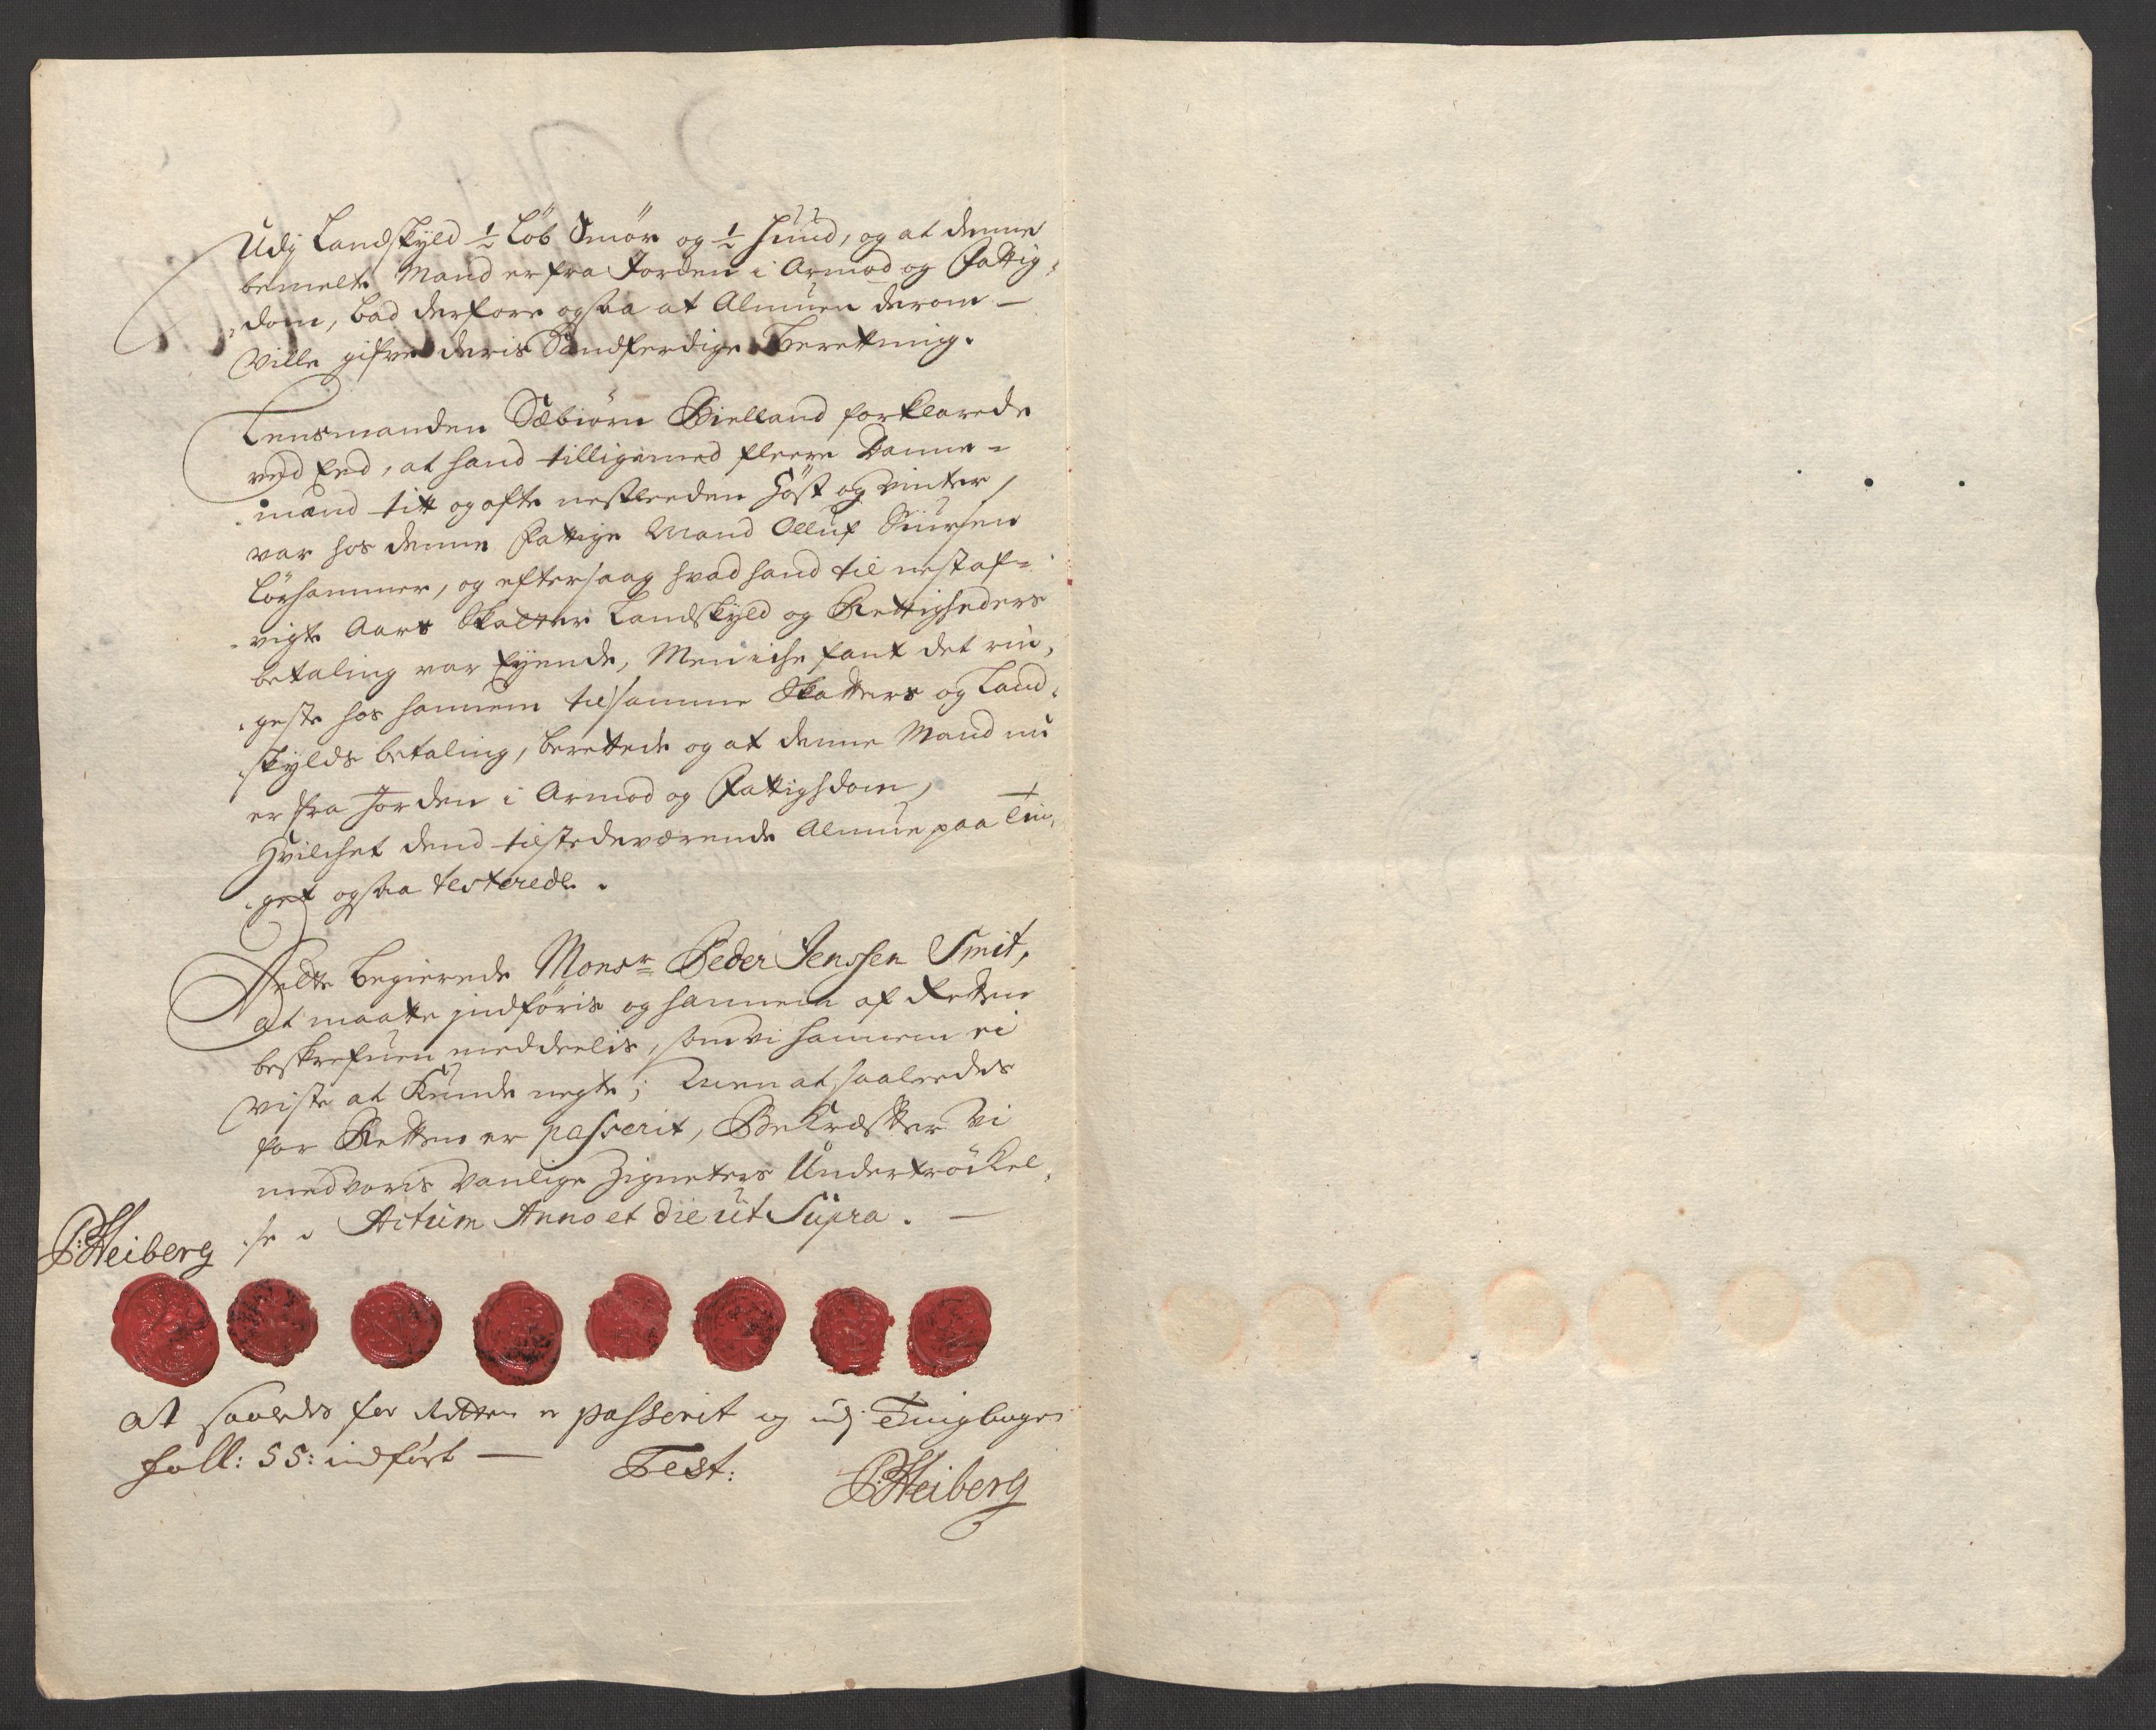 Udj Landskyld ½ Løb Smør og ½ Hūud, og at denne
bemelte Mand er fra Jorden i Armod og Fattig,
dom, bad derfore ogsaa at Almuen derom —
Ville gifve deris Sandferdige Berettning.
Lensmanden Sæbiørn Bielland forklarede
ved Eed, at hand tilligemed fleere Danne-
mænd titt og ofte nestleeden Høst og Vinter,
var hos denne Fattige Mand Olluf Siursen
Lørhammer, og eftersaag hvad hand til nestaf-
vigte Aars Skatter Landskyld og Rettigheders
betaling var Eyende, Men iche fant det rin,
geste hos hannem til samme Skatters og Land,
skylds betaling, berettede og at denne Mand nu
er fra Jorden i Armod og Fattigsdom,
Hvilchet dend tilstedeværende Almue paa Tin,
get ogsaa testerede.
Dette begierede Monsr Peder Jenssen Smit,
at maatte indføris og hannem af Retten
beskrefuen meddeelis, som vi hannem ei
viste at Kunde negte; Men at saaledes
for Retten er passerit, Bekræftter Vi
med voris Vanlige Zigneters Undertrøchel,
se. Actum Anno et die ut Supra. —
P:Heiberg
at saaledes for Retten er passerit og udj Tingbogen
foll: 55: indført — Test:
P:Heiberg